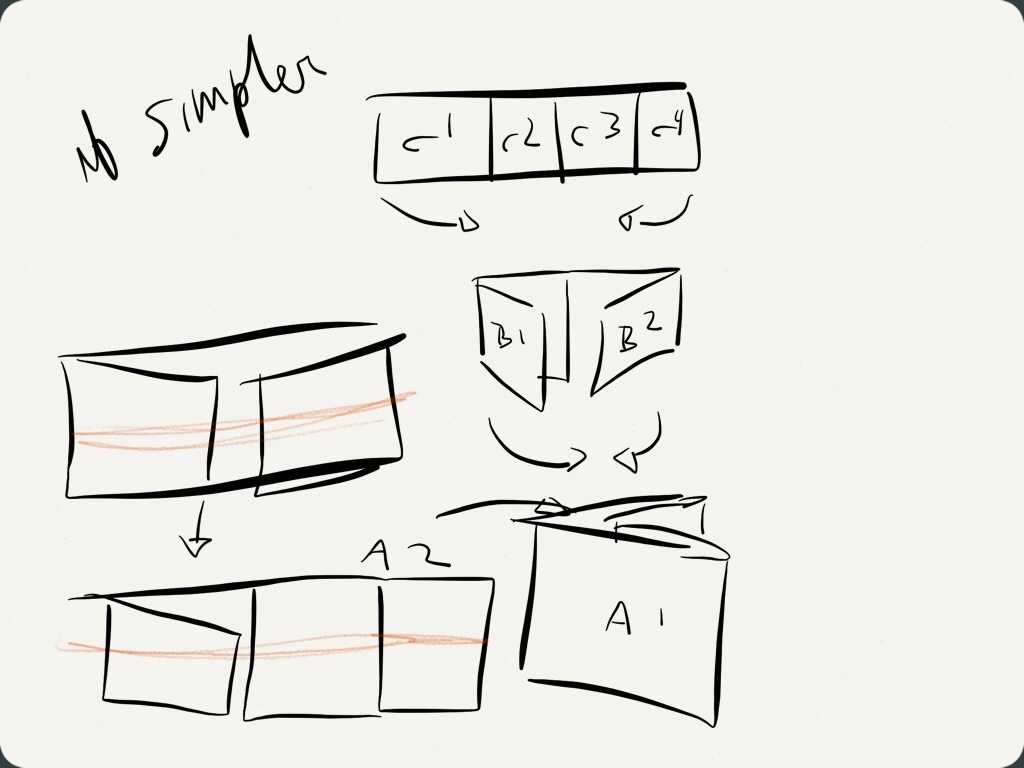 No simpler
C1 C2 C3 C4
B1 B2
A2
A1